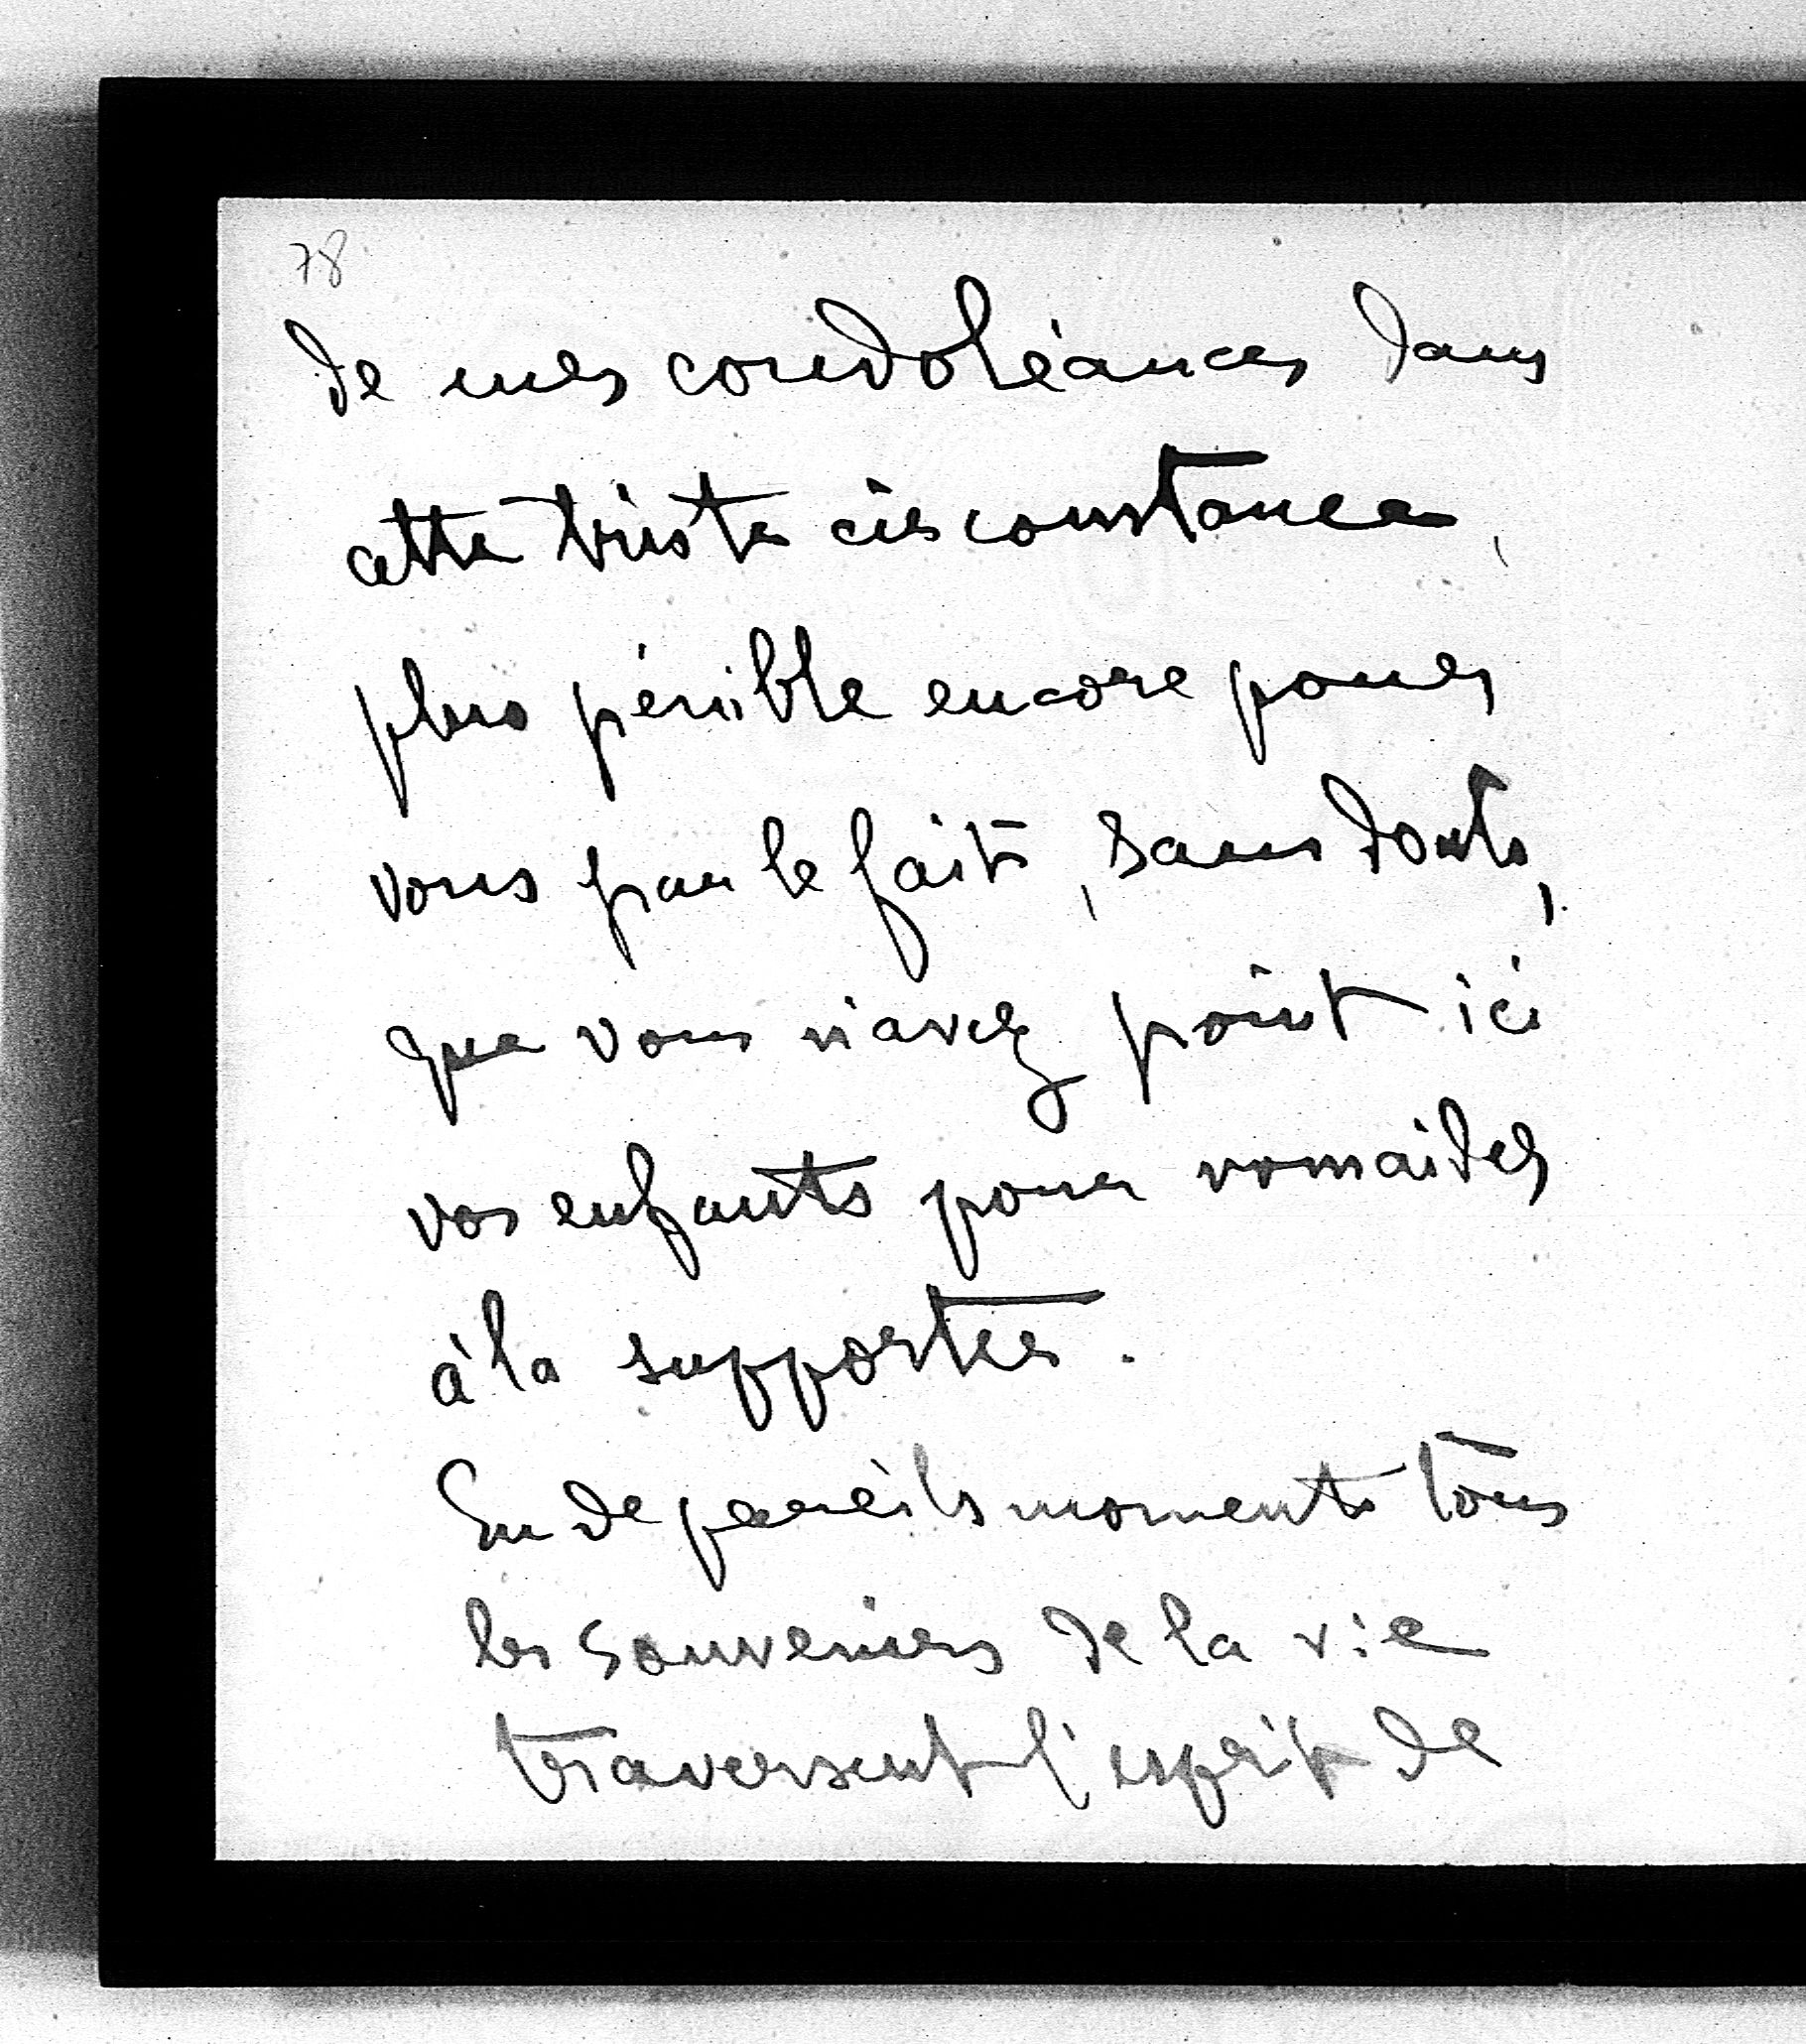 78
de mes condoléances dans
cette triste circonstance,
plus pénible encore pour
vous par le fait, sans doute,
que vous n'avez point ici
vos enfants pour vous aider
à la supporter.
En de pareils moments tous
les souvenirs de la vie
traversent l'esprit de